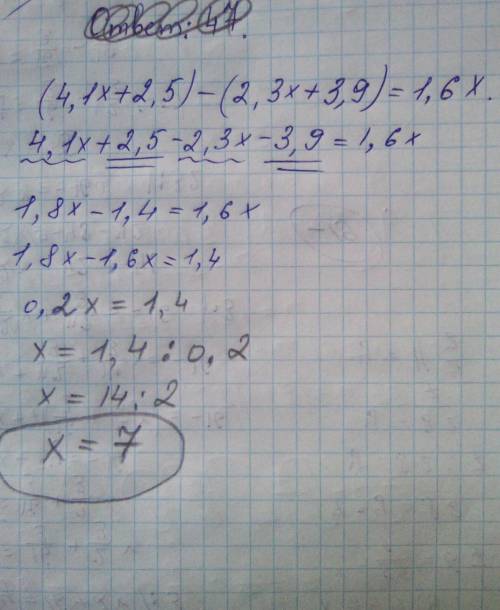 Ответ: 47.
(4,1x+2,5)-(2,3x+3,9)=1,6x.
4,1x+2,5-2,3x-3,9=1,6x
1,8x-1,4=1,6x
1,8x-1,6x=1,4
0,2x=1,4
x=1,4:0.2
x=14:2
x=7